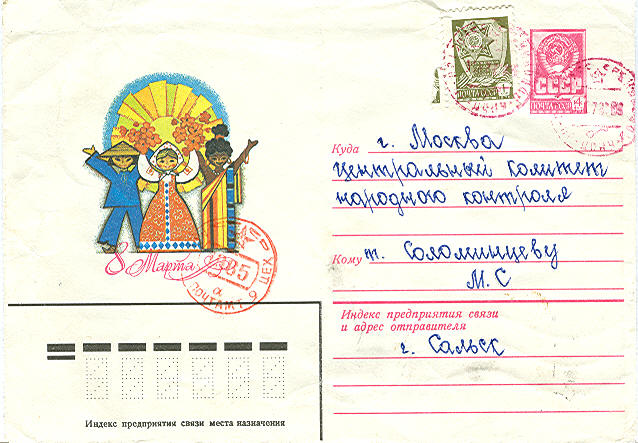 ПОЧТА СССР 4К
СССР
ПОЧТА СССР 4К
Куда г. Москва
Центральный комитет
народного контроля
Кому т. Соломинцеву
М. С
Индекс предприятия связи
и адрес отправителя
г. Сальск
8 Марта
ПОЧТАМТ 9 ЦЕХ
Индекс предприятия связи места назначения